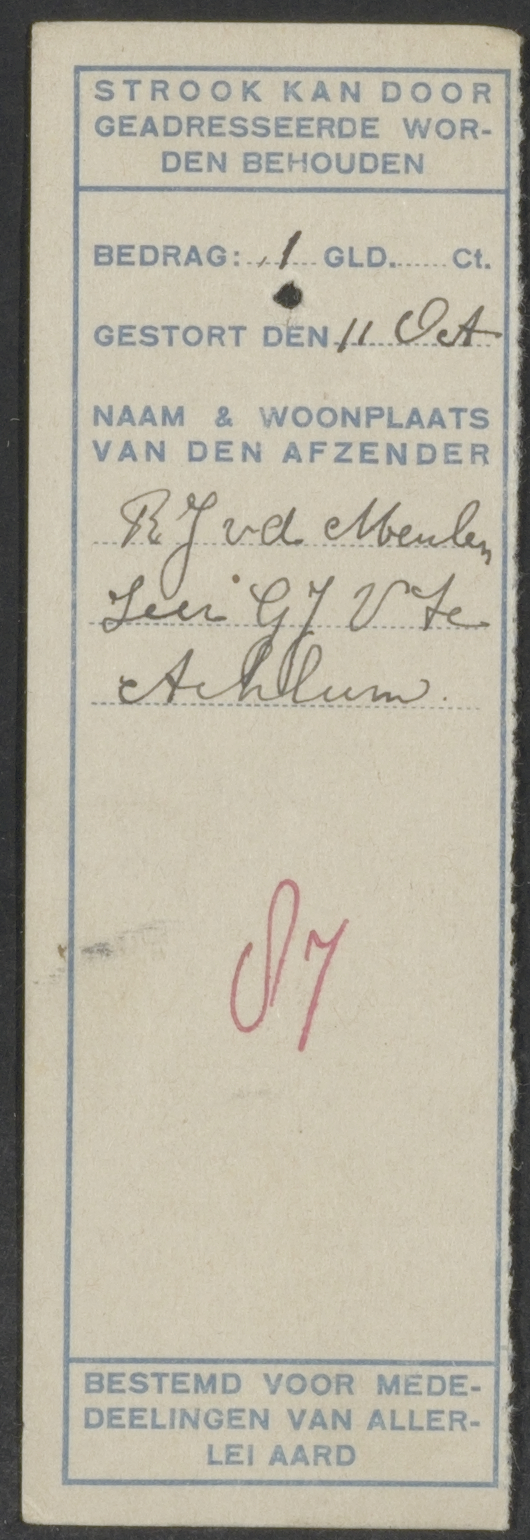 STROOK KAN DOOR
GEADRESSEERDE WOR-
DEN BEHOUDEN
BEDRAG: 1 GLD. Ct.
GESTORT DEN 11 Oct
NAAM & WOONPLAATS
VAN DEN AFZENDER
R J vd Meulen
G J V te
Achlum.
87
BESTEMD VOOR MEDE-
DEELINGEN VAN ALLER-
LEI AARD